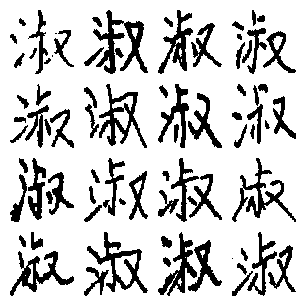 淑淑淑淑
淑淑淑淑
淑淑淑淑
淑淑淑淑